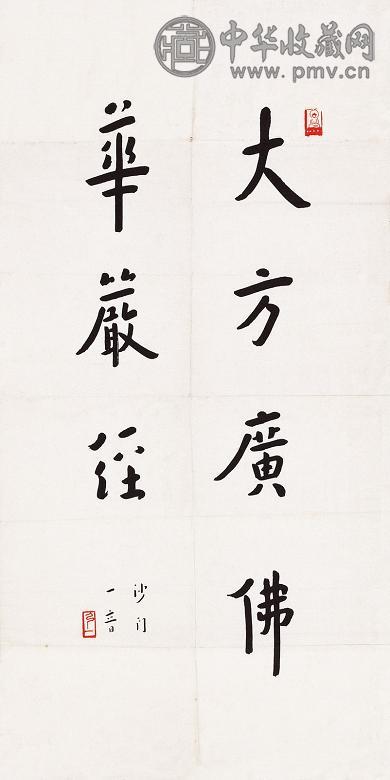 中华收藏网
www.pmv.cn
大方廣佛
華嚴經
沙门
一音